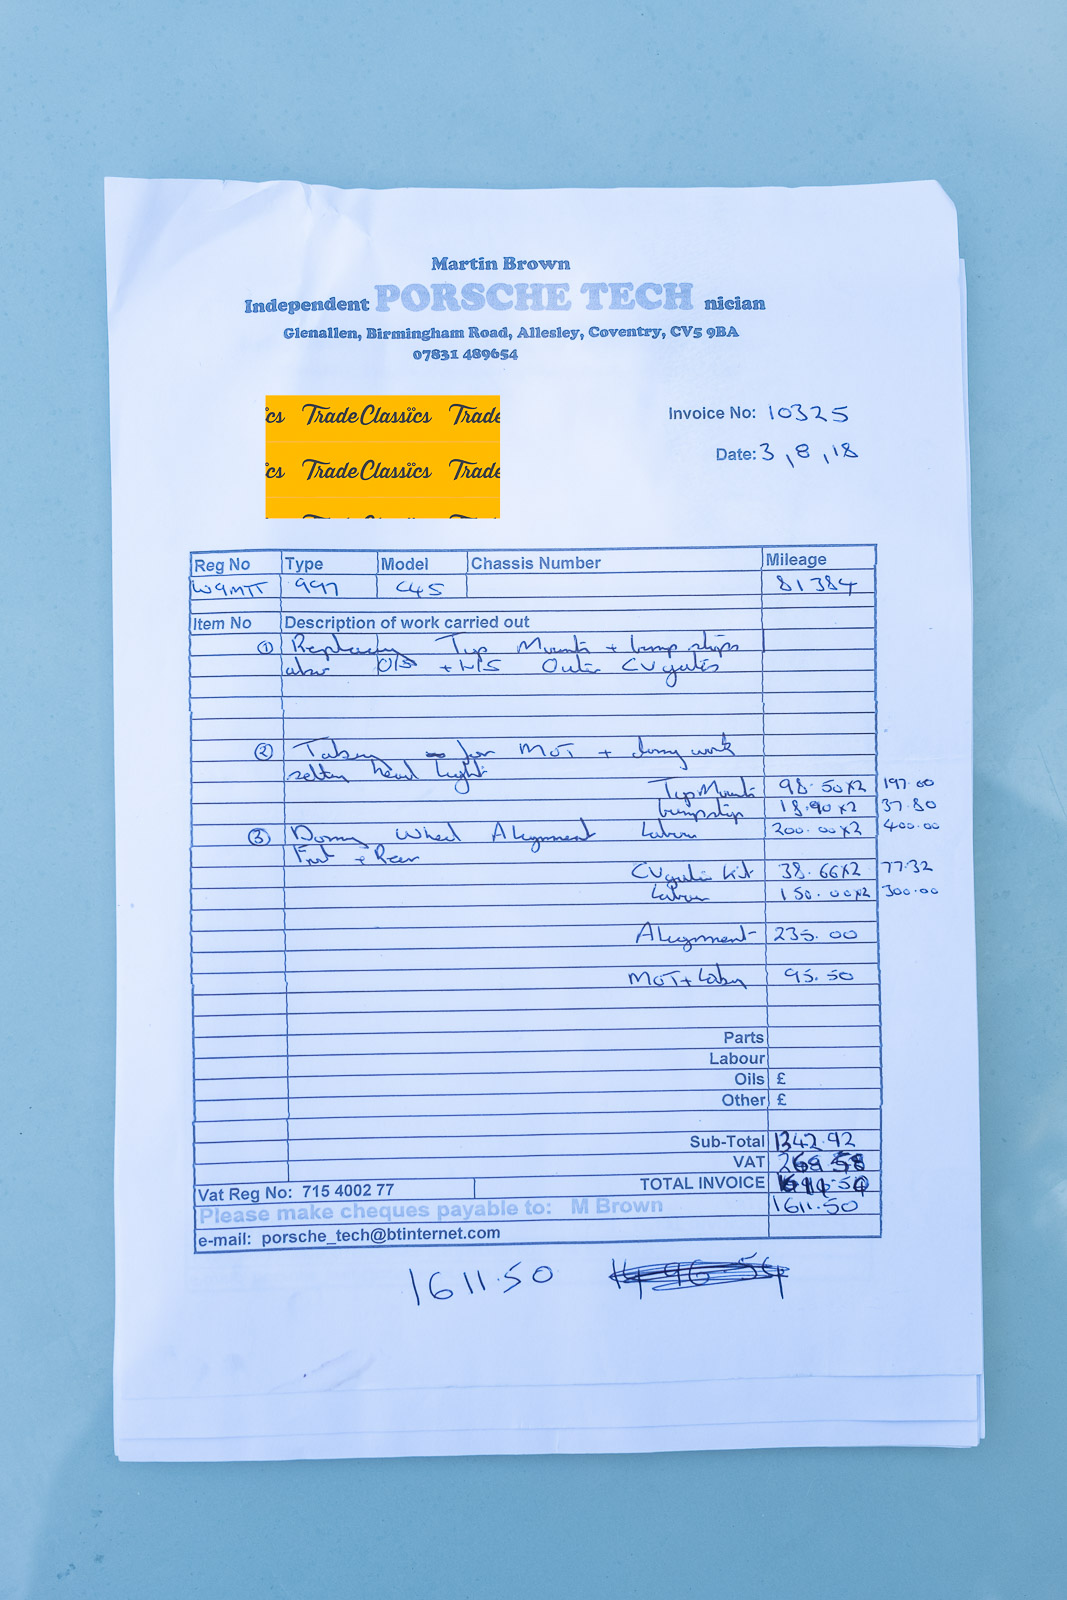 Martin Brown
Independent PORSCHE TECH nician
Glenallen, Birmingham Road, Allesley, Coventry, CV5 9BA
07831 489654
cs TradeClassics Trade
cs TradeClassics Trade
Invoice No: 10325
Date: 3,8,18
Reg No Type Model Chassis Number Mileage
W9MTT 997 C4S 81384
Item No Description of work carried out
① Replacing Top Mounts + bump stops
also O/S + N/S Outer CV gaiters
② Taking for MOT + doing work
head light
Top Mounts 98.50x2 197.00
bumpstop 18.90x2 37.80
③ Doing Wheel Alignment Labour 200.00x2 400.00
Front + Rear
CV gaiter kit 38.66x2 77.32
Labour 150.00x2 300.00
Alignment 235.00
MOT + Labour 95.50
Parts
Labour
Oils £
Other £
Sub-Total 1342.92
VAT 268.58
TOTAL INVOICE
Vat Reg No: 715 4002 77
1611.50
Please make cheques payable to: M Brown
e-mail: porsche_tech@btinternet.com
1611.50